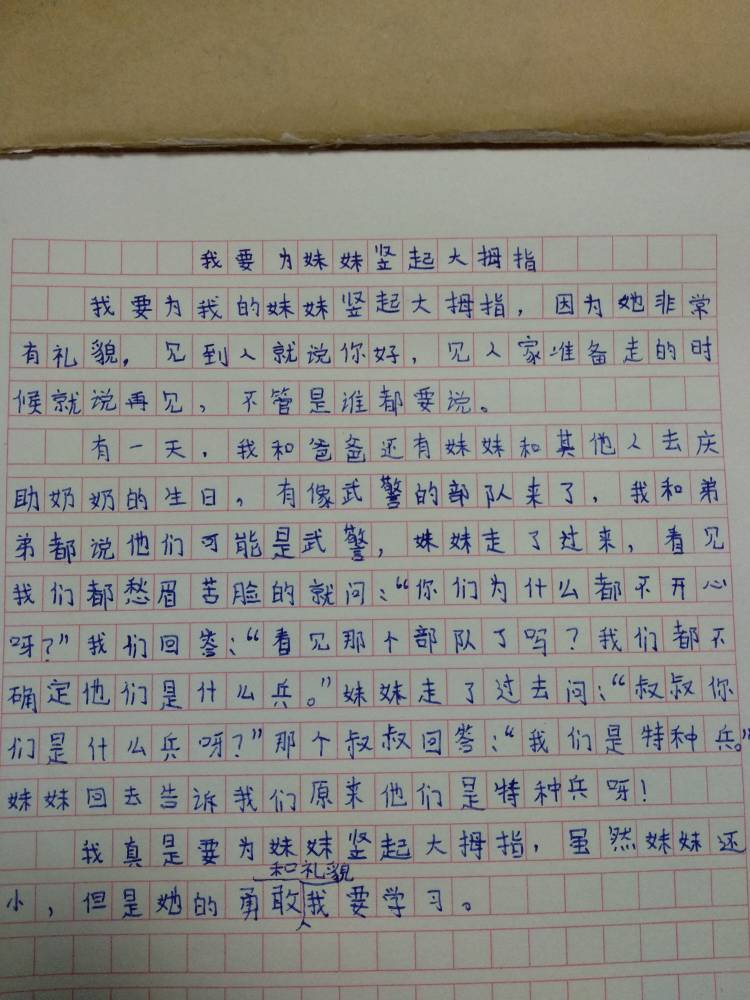 我要为妹妹竖起大拇指
我要为我的妹妹竖起大拇指，因为她非常
有礼貌，见到人就说你好，见人家准备走的时
候就说再见，不管是谁都要说。
有一天，我和爸爸还有妹妹和其他人去庆
助奶奶的生日，有像武警的部队来了，我和弟
弟都说他们可能是武警，妹妹走了过来，看见
我们都愁眉苦脸的就问：“你们为什么都不开心
呀？”我们回答：“看见那个部队了吗？我们都不
确定他们是什么兵。”妹妹走了过去问：“叔叔你
们是什么兵呀？”那个叔叔回答：“我们是特种兵。”
妹妹回去告诉我们原来他们是特种兵呀！
我真是要为妹妹竖起大拇指，虽然妹妹还
小，但是她的勇敢和礼貌我要学习。